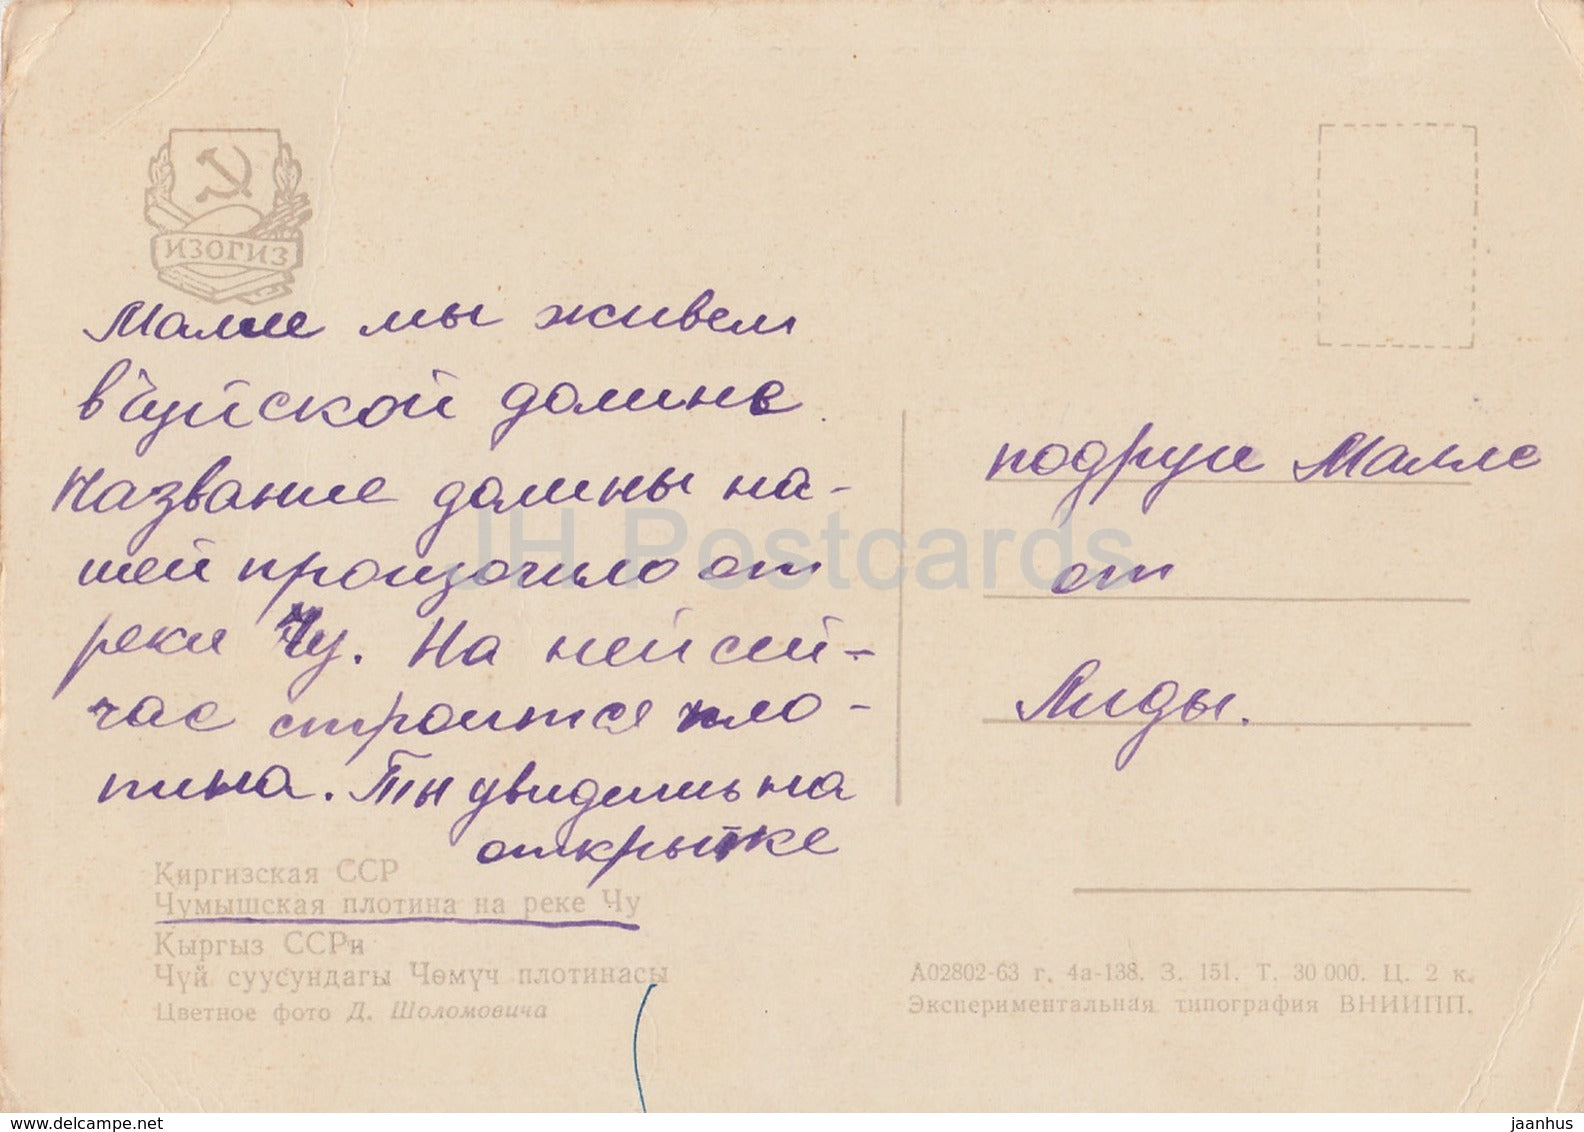 ИЗОГИЗ
Малле мы живем
в Чуйской долине
Название долины на-
шей произошло от
реки Чу. На ней сей-
час строится пло-
тина. Ты увидишь на
открытке
подруге Малле
от
Лиды.
Киргизская ССР
Чумышская плотина на реке Чу
Кыргыз ССРи
Чүй суусундагы Чөмүч плотинасы
Цветное фото Д. Шоломовича
А02802-63 г. 4а-138. З. 151. Т. 30 000. Ц. 2 к.
Экспериментальная типография ВНИИПП.
JH Postcards
www.delcampe.net
jaanhus